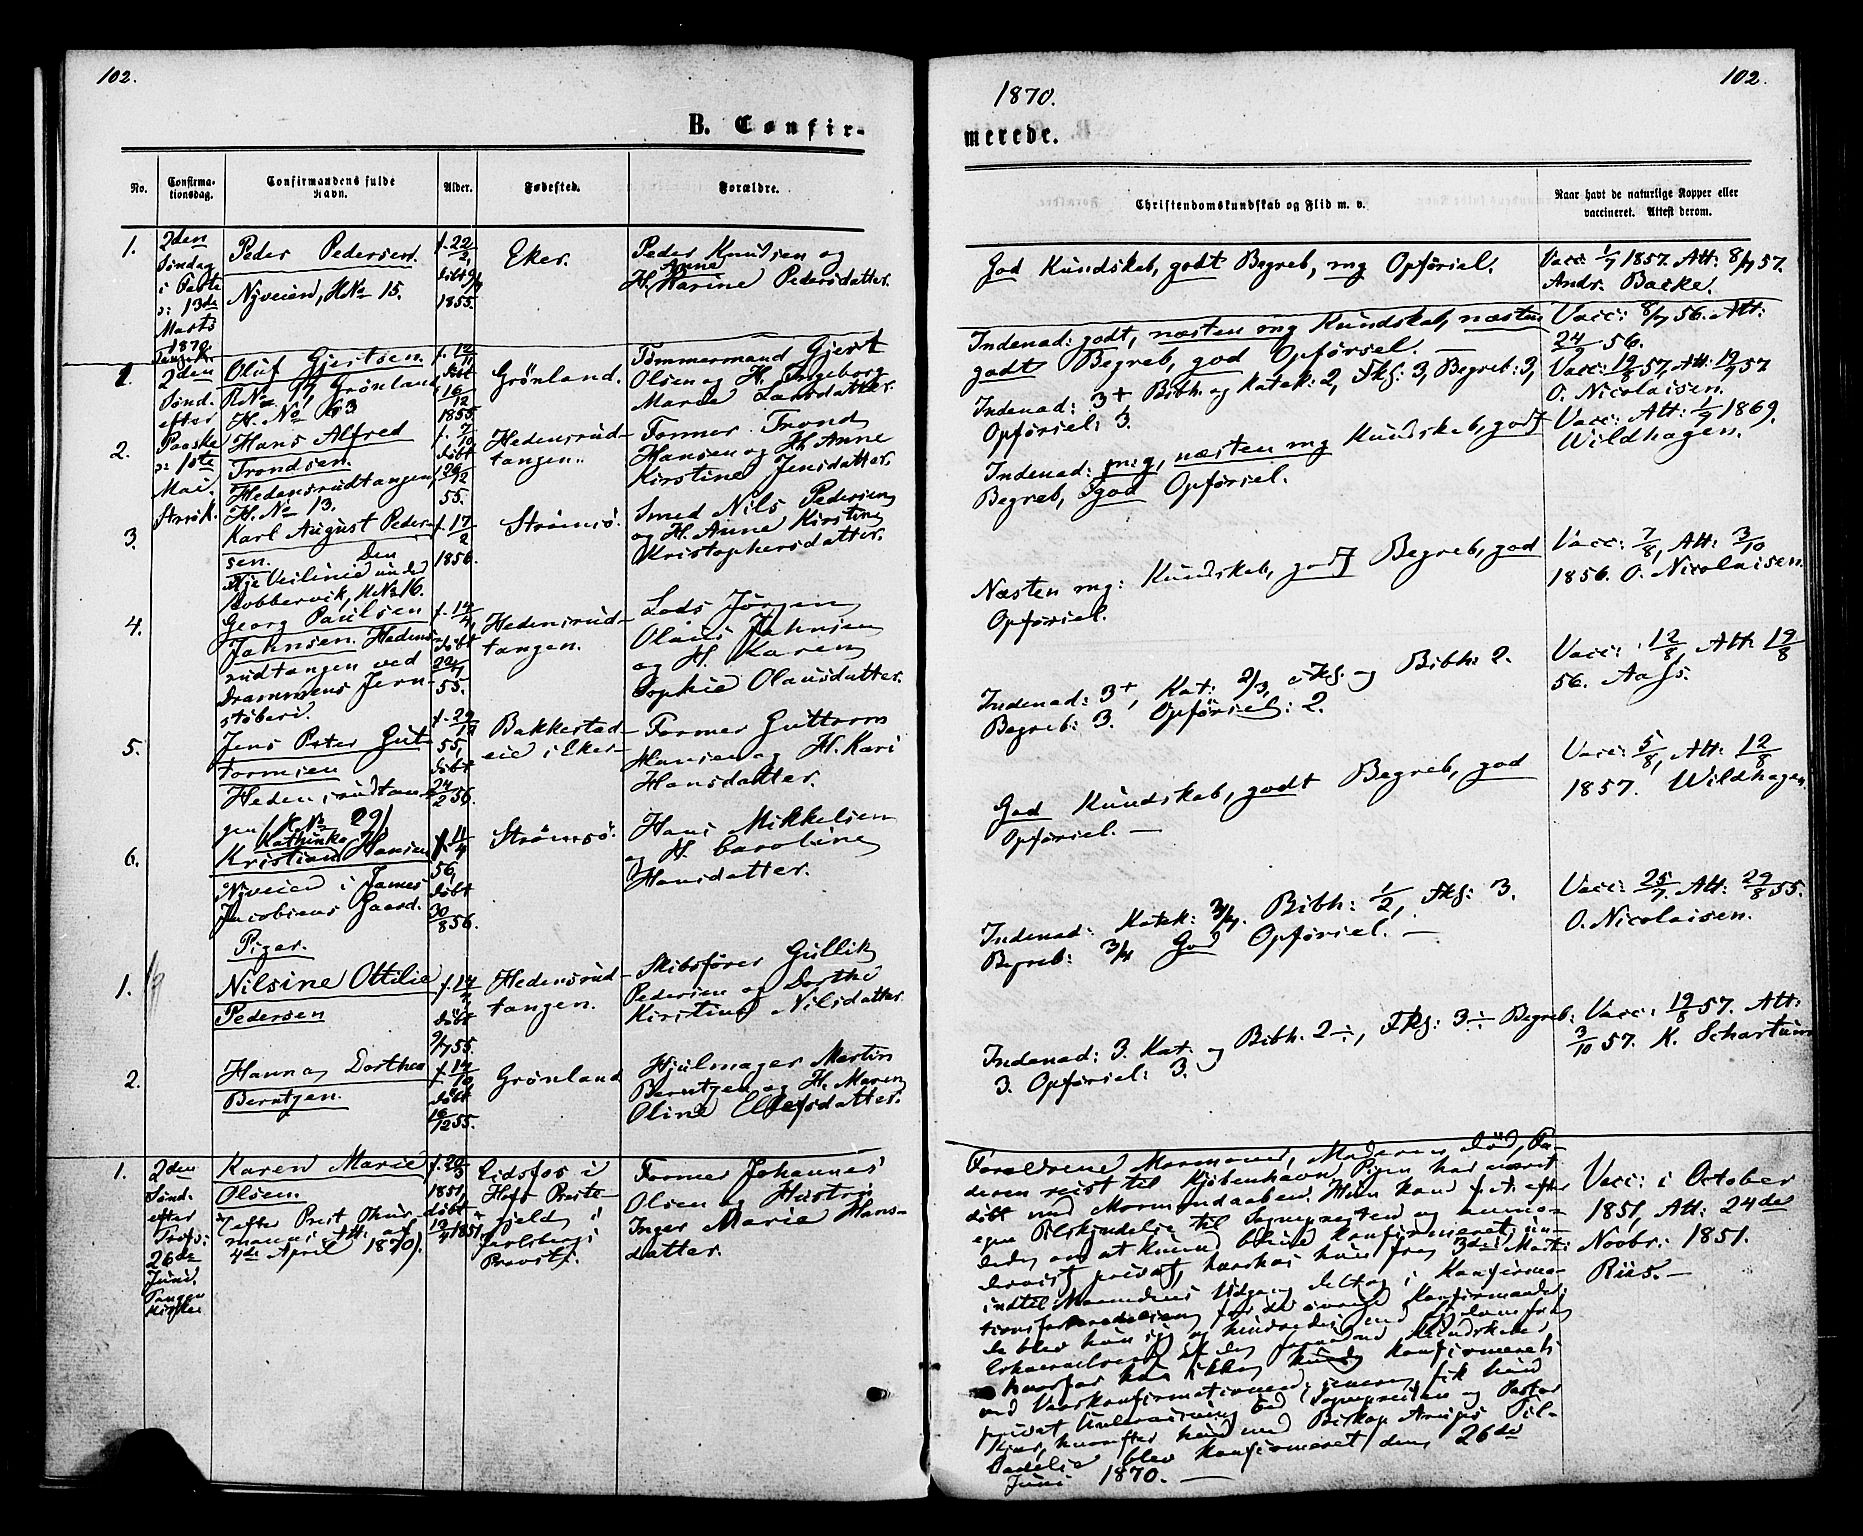 102.
B. Confir-
No.
Confirma-
tionsdag.
Confirmandens fulde
Navn.
Alder.
Fødested.
Forældre.
1.
2den
Søndag
i Faste
13de
Marts
1870
Peder Pedersen.
Nyveien, H. No 15.
f. 22/2,
døbt 9/4
1855.
Eker.
Peder Knudsen og
H. Anne
Karine Pedersdatter.
2den
Sönd.
efter
Paaske
1ste
Mai.
Oluf Gjertsen.
Grønland
H. No 63
f. 12/10
døbt
16/12
1855.
Grønland.
Tømmermand Gjert
Olsen og H. Ingeborg
Marie Larsdatter.
2.
Hans Alfred
Trondsen.
Hedensrudtangen,
H. No 13.
f. 7/10
døbt
26/12
55.
Hedensrud-
tangen.
Former Trond
Hansen og H. Anne
Kirstine Jensdatter.
3.
Karl August Peder-
sen. Den
nye Veilinie under
Kobbervik, H No 16.
f. 17/2
1856.
Strømsö.
Smed Nils Pedersen
og H. Anne Kirstine
Kristophersdatter.
4.
Georg Paulsen
Jahnsen. Hedens-
rudtangen ved
Drammens Jern-
støberi.
døbt
22/7
55.
Hedensrud-
tangen.
Lods Jørgen
Olaus Jahnsen
og H. Karen
Sophie Olausdatter.
5.
Jens Peter Gut-
tormsen
Hedensrudtan-
gen (H. No 29)
55,
døbt
24/2 56.
Bakkestad-
eie i Eker
Former Guttorm
Hansen og H. Kari
Hansdatter.
6.
Kathinka
Kristian Hansen
Nyveien i James
Jacobsens Gaard.
f. 11/4
56,
døbt
30/8 56.
Strømsö.
Hans Mikkelsen
og H. Caroline
Hansdatter.
Piger.
1.
Nilsine Ottilie
Pedersen
døbt
9/7 55.
Hedensrud-
tangen.
Skibsfører Gullik
Pedersen og Dorthe
Kirstine Nilsdatter.
2.
Hanna Dorthea
Berntzen.
f. 14/10,
døbt
16/12 55.
Grønland
Hjulmager Martin
Berntzen og H. Maren
Oline Ellefsdatter.
1.
2den
Sönd.
efter
Trefo:
26de
Juni.
Tangen
Kirke
Karen Marie
Olsen
(efter Prest
Att: af
4de April 1870).
f. 20/3
1851,
døbt
Eidsfos i
Hofs Preste-
gjeld i
Jarlsbergs
Provsti.
Former Johannes
Olsen og Hustru
Inger Marie Hans-
datter.
102.
1870.
merede.
Christendomskundskab og Flid m. v.
Naar havt de naturlige Kopper eller
vaccineret. Attest derom.
God Kundskab, godt Begreb, mg Opførsel.
Vacc: 1/7 1857. Att: 8/7 57.
Andr. Backe.
Indenad: godt, næsten mg Kundskab, næsten
godt Begreb, god Opførsel.
Vacc: 8/7 56. Att:
24/ 56.
Indenad: 3+ Bibh. og Katek: 2, Fkl: 3, Begreb: 3,
Opførsel: 3.
Vacc: 19/8 57, Att: 19/ 57
O. Nicolaisen.
Indenad: mg, næsten mg Kundskab, godt
Begreb, god Opførsel.
Vacc: Att: 1/9 1869.
Wildhagen.
Næsten mg: Kundskab, godt Begreb, god
Opførsel.
Vacc: 7/8, Att: 3/10
1856. O. Nicolaisen.
Indenad: 3+, Kat: 2/3, Fkl. og Bibh: 2.
Begreb: 3. Opførsel: 2.
Vacc: 12/8, Att: 19/8
56. Aass.
God Kundskab, godt Begreb, god
Opførsel.
Vacc: 5/8, Att: 12/8
1857. Wildhagen.
Indenad: Katek: 3/4. Bibh: 1/2, Fkl: 3.
Begreb: 3/4 God Opførsel.
Vacc: 25/7. Att: 29/8 55.
O. Nicolaisen.
Indenad: 3. Kat. og Bibh. 2÷, Fkl: 3÷ Begreb:
3. Opførsel: 3.
Vacc: 19/8 57. Att:
3/10 57. K. Schartum
Forældrene Mormoner, Moderen död, Fa-
deren reist til Kjöbenhavn. Pigen har været
döbt med Mormondaaben. Hun kom f. A. efter
egen Tilskyndelse til Sognepresten og anmo-
dede om at kunne blive konfirmeret, un-
dervist privat, hvorhos hun fra 3die Marts
indtil Maanedens Udgang deltog i Konfirma-
tionsforberedelsen for de övrige Konfirmander;
de blev hun syg og hindredes ved Sygdom fra
Erhvervelsen af den fornødne Kundskab,
hvorfor hun ikke kunde konfirmeres
ved Vaarkonfirmationen; senere fik hun
privat Undervisning ved Sognepresten og Pastor
Kjær, hvorefter hun med Biskop Arups Til-
ladelse blev konfirmeret den 26de
Juni 1870.
Vacc: i October
1851, Att: 24de
Novbr: 1851.
Riis.